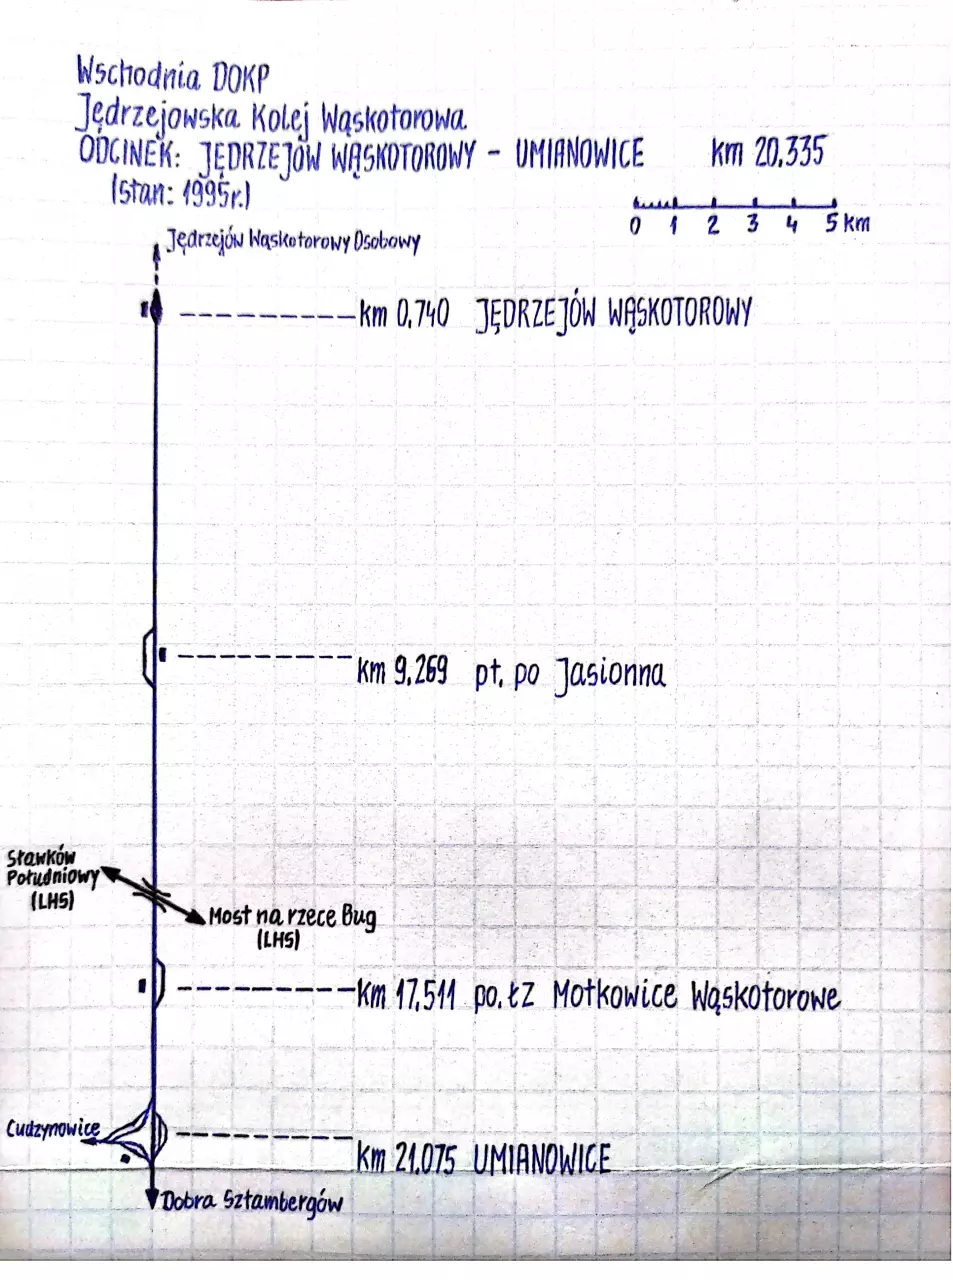 Wschodnia DOKP
Jędrzejowska Kolej Wąskotorowa
ODCINEK: JĘDRZEJÓW WĄSKOTOROWY - UMIANOWICE km 20.335
(Stan: 1995r.)
0 1 2 3 4 5 km
Jędrzejów Wąskotorowy Osobowy
km 0.740 JĘDRZEJÓW WĄSKOTOROWY
km 9.269 pt. po Jasionna
Sławków
Południowy
(LHS)
Most na rzece Bug
(LHS)
km 17.511 po. łz Motkowice Wąskotorowe
Cudzynowice
km 21.075 UMIANOWICE
Dobra Sztambergów